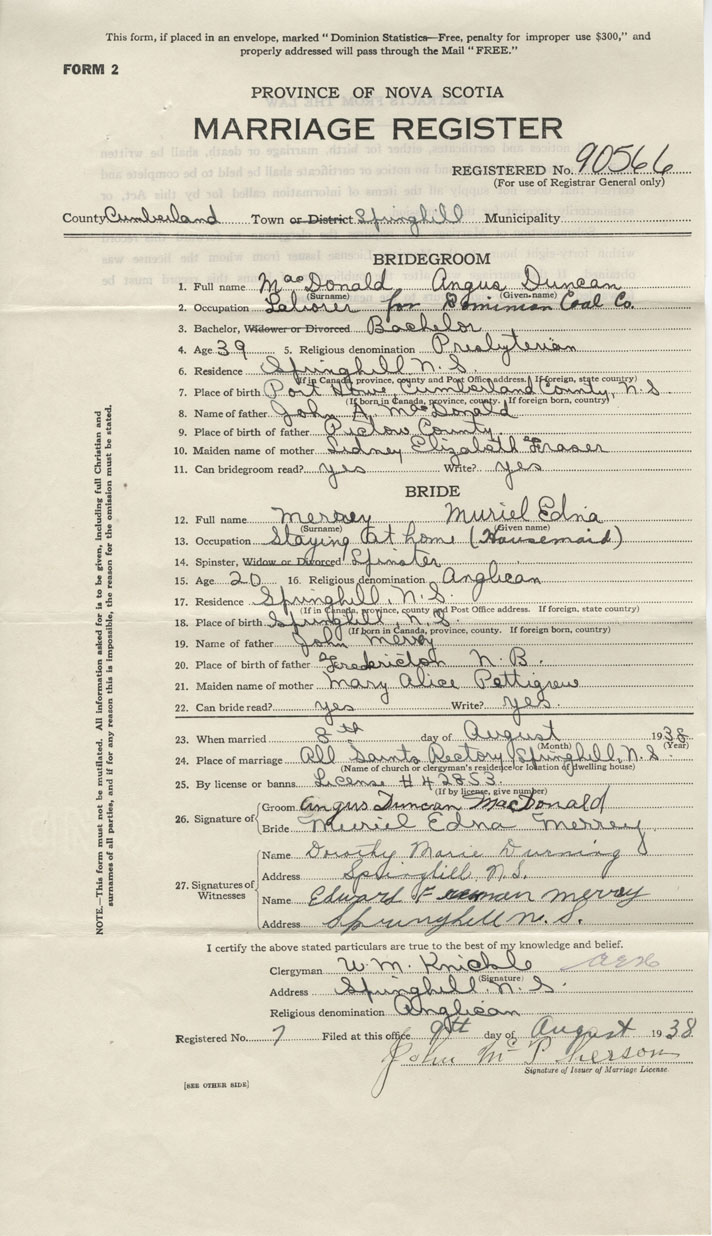 This form, if placed in an envelope, marked "Dominion Statistics—Free, penalty for improper use $300," and
properly addressed will pass through the Mail "FREE."
FORM 2
PROVINCE OF NOVA SCOTIA
MARRIAGE REGISTER
REGISTERED No. 90566
(For use of Registrar General only)
County Cumberland Town or District Springhill Municipality
BRIDEGROOM
1. Full name MacDonald Angus Duncan
(Surname) (Given name)
2. Occupation Laborer for Dominion Coal Co.
3. Bachelor, Widower or Divorced Bachelor
4. Age 39 5. Religious denomination Presbyterian
6. Residence Springhill N. S.
(If in Canada, province, county and Post Office address. If foreign, state county)
7. Place of birth Port Howe, Cumberland County, N.S
(If born in Canada, province, county. If foreign born, country)
8. Name of father John A. MacDonald
9. Place of birth of father Pictou County
10. Maiden name of mother Sidney Elizabeth Fraser
11. Can bridegroom read? yes Write? yes
BRIDE
12. Full name Merrey Muriel Edna
(Surname) (Given name)
13. Occupation Staying at home (Housemaid)
14. Spinster, Widow or Divorced Spinster
15. Age 20 16. Religious denomination Anglican
17. Residence Springhill, N. S.
(If in Canada, province, county and Post Office address. If foreign, state country)
18. Place of birth Springhill, N. S.
(If born in Canada, province, county. If foreign born, country)
19. Name of father John Merrey
20. Place of birth of father Fredericton N. B.
21. Maiden name of mother Mary Alice Pettigrew
22. Can bride read? yes Write? yes.
23. When married 8th day of August 1938
(Month) (Year)
24. Place of marriage All Saints Rectory Springhill, N. S.
(Name of church or clergyman's residence or location of dwelling house)
25. By license or banns License # 42853.
(If by license, give number)
26. Signature of Groom Angus Duncan MacDonald
Bride Muriel Edna Merrey
27. Signatures of Witnesses
Name Dorothy Marie Durning
Address Springhill N.S.
Name Edward Freeman Merrey
Address Springhill N. S.
I certify the above stated particulars are true to the best of my knowledge and belief.
Clergyman W. M. Knickle
(Signature)
Address Springhill N. S.
Religious denomination Anglican
Registered No. 7 Filed at this office 9th day of August 1938
John McPherson
Signature of Issuer of Marriage License.
[SEE OTHER SIDE]
NOTE.—This form must not be mutilated. All information asked for is to be given, including full Christian and
surnames of all parties, and if for any reason this is impossible, the reason for the omission must be stated.